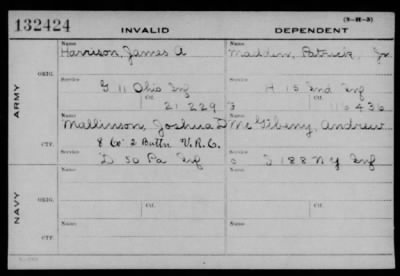 (3-H-3)
132424 INVALID DEPENDENT
Name Name
Harrison, James A Madden, Patrick, Jr
ORIG.
Service Service
G 11 Ohio Inf H 15 Ind Inf
Ctf. Ctf.
21 229 116436
ARMY
Name Name
Mallinson, Joshua D McGibeny, Andrew
8 Co 2 Battn V.R.C.
CTF.
Service Service
D 50 Pa Inf I 188 N Y Inf
Name Name
ORIG.
Service Service
Ctf. Ctf.
NAVY
Name Name
CTF.
Service Service